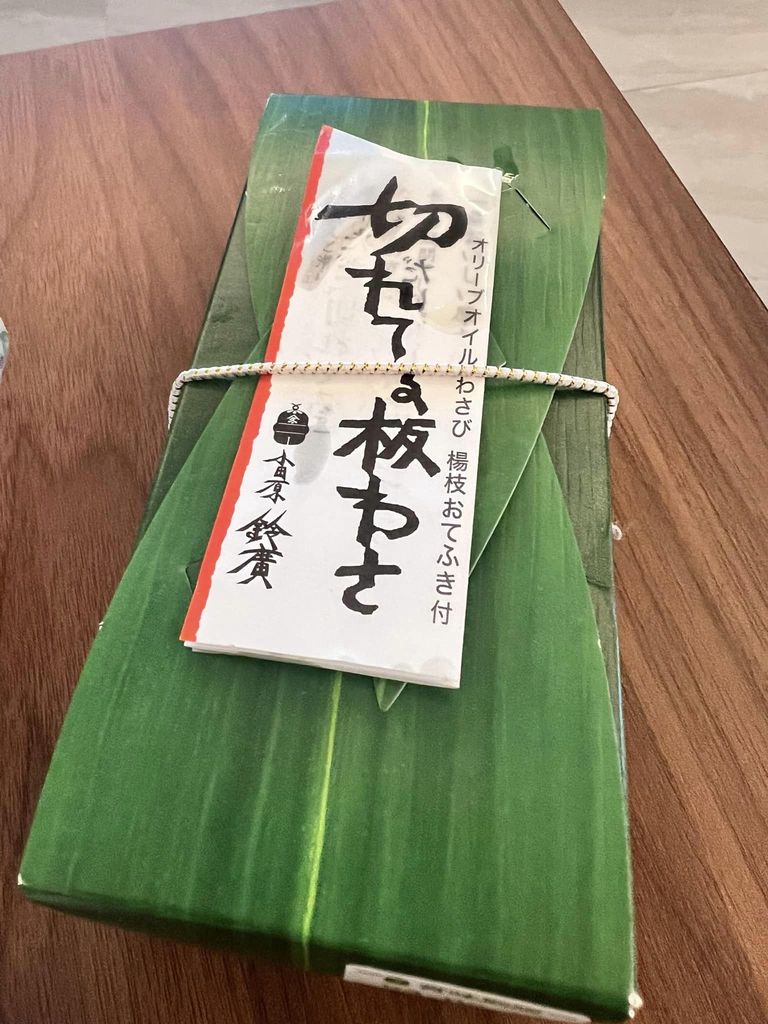 オリーブオイルわさび 楊枝おてふき付
切れてる板わさ
小田原 鈴廣